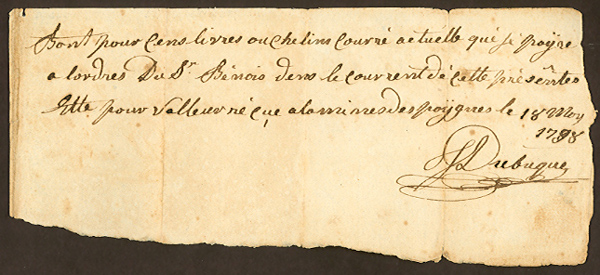 Bont pour Cens livres ou chelins Courné actuelle qué jé poÿré
a lordres Du Sr. Bénois dens le courrent dé cette présentes
Ette pour valleur né çue a la mines des poÿgnes le 18 Moy
1798
J Dubuque